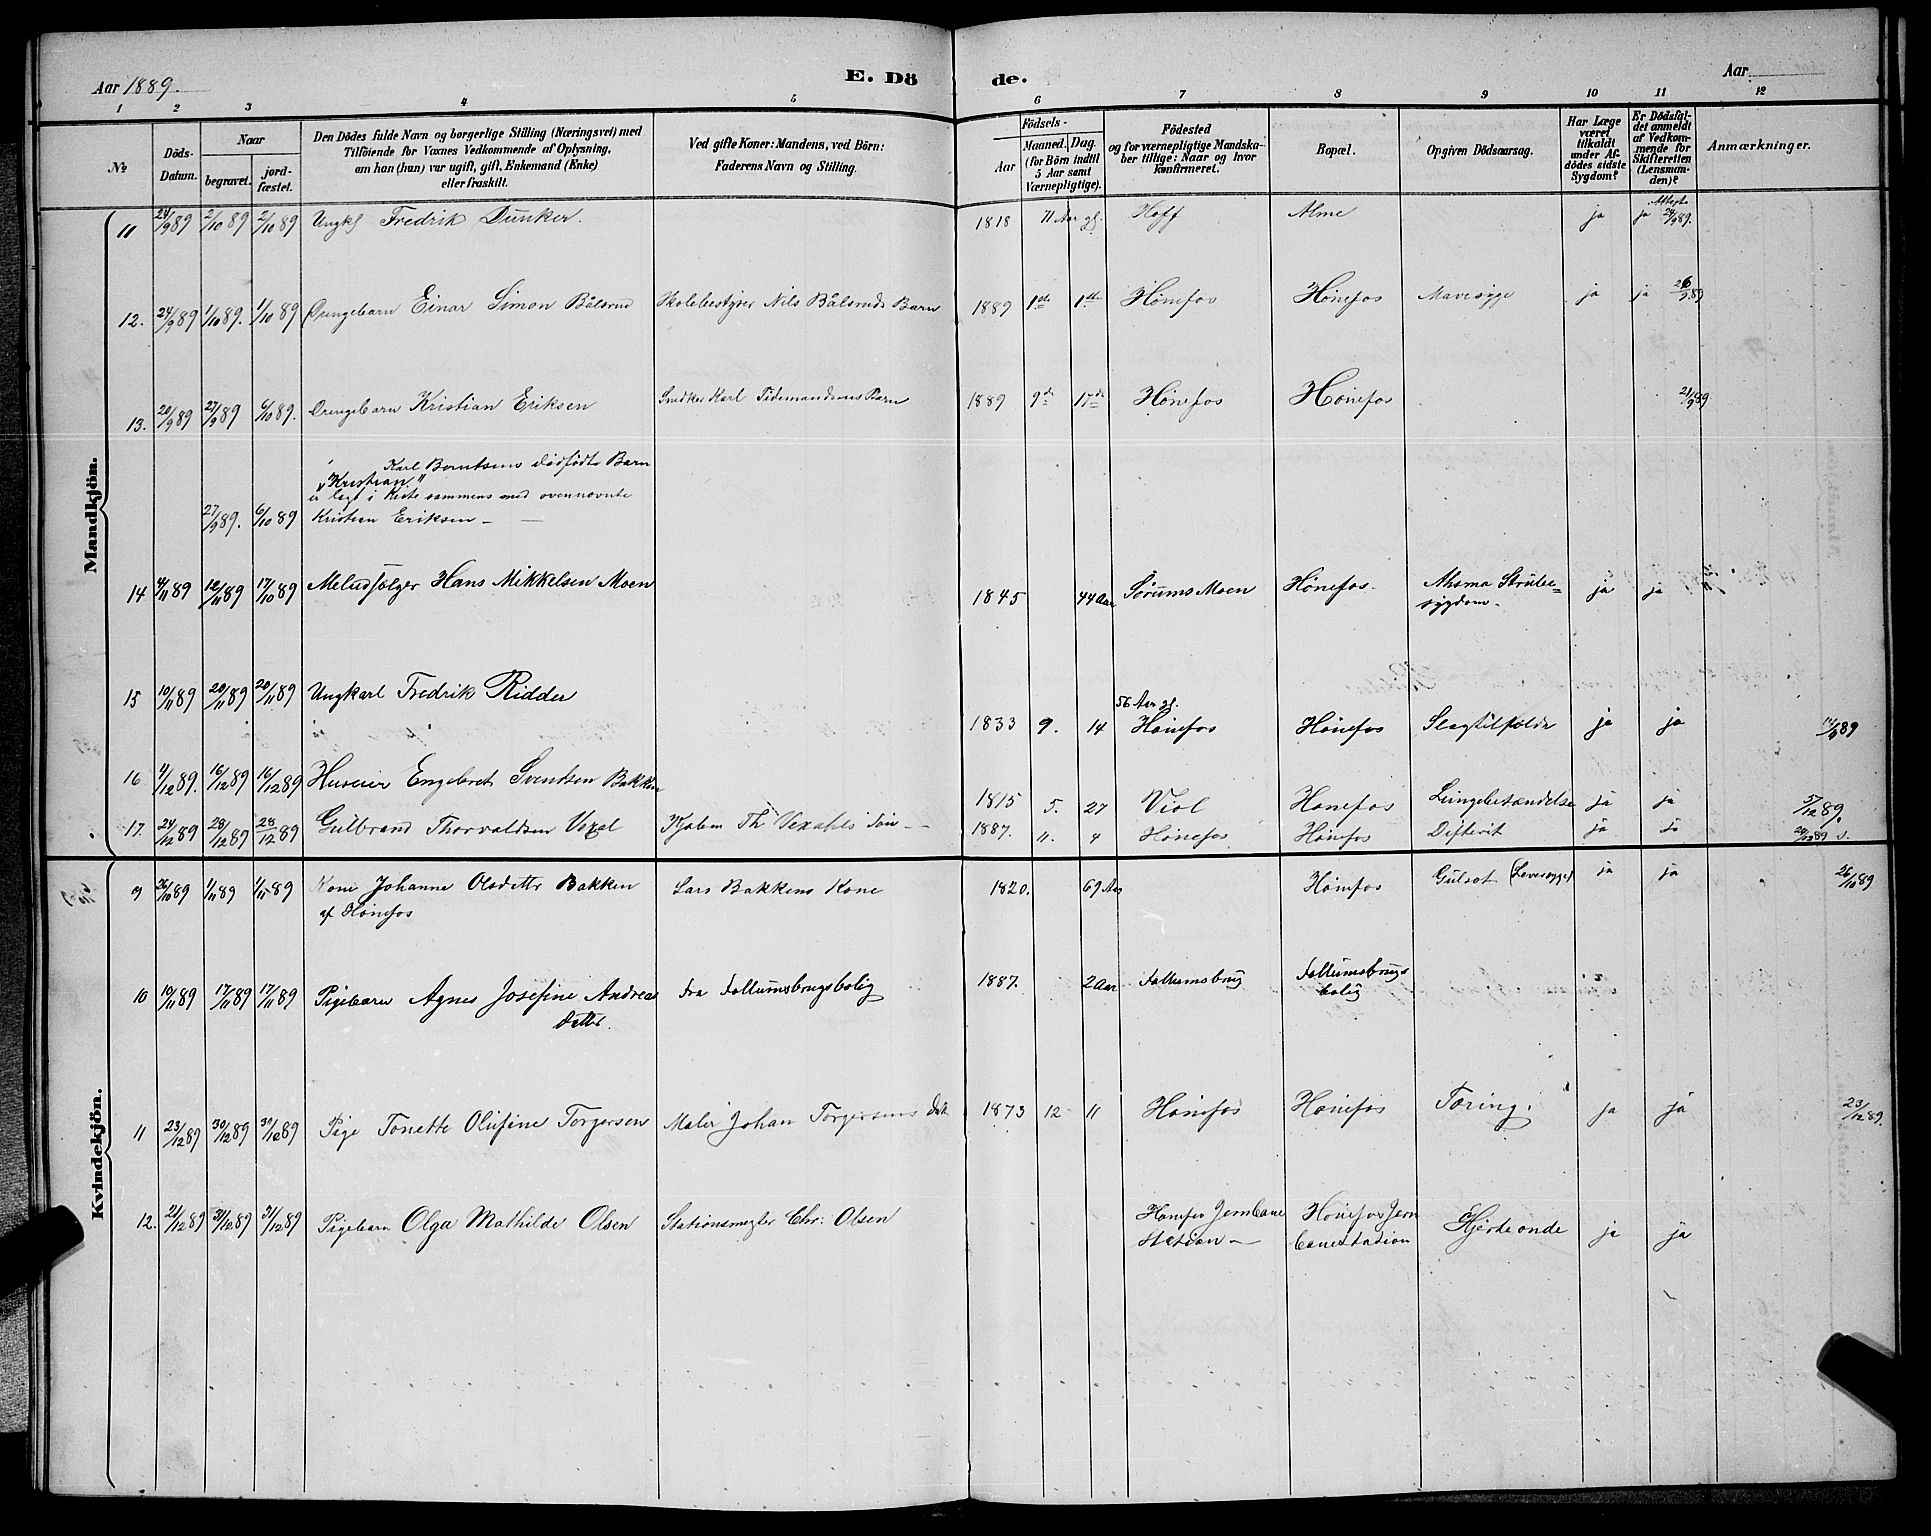 Aar 1889.
E. Dö de.
Aar
1 2 3 4 5 6 7 8 9 10 11 12
No
Döds-Datum.
Naar
begravet.
jord-fæstet.
Den Dödes fulde Navn og borgerlige Stilling (Næringsvei) med
Tilföiende for Voxnes Vedkommende af Oplysning,
om han (hun) var ugift, gift, Enkemand (Enke)
eller fraskilt.
Ved gifte Koner: Mandens, ved Börn:
Faderens Navn og Stilling.
Födsels-
Aar
Maaned. Dag.
(for Börn indtil
5 Aar samt
Værnepligtige).
Födested
og for værnepligtige Mandska-
ber tillige: Naar og hvor
konfirmeret.
Bopæl.
Opgiven Dödsaarsag.
Har Læge
været
tilkaldt
under Af-
dödes sidste
Sygdom?
Er Dödsfal-
det anmeldt
af Vedkom-
mende for
Skifteretten
(Lensman-
den)?
Anmærkninger.
Mandkjön.
11 24/9 89 2/10 89 2/10 89 Ungk Fredrik Dunker. 1818 71 Aar gl. Hoff Alme ja ja 24/9 89.
12. 24/9 89 1/10 89. 1/10 89 Drengebarn Einar Simon Bålsrud Skolebestyrer Nils Bålsruds Barn 1889 1ste 1ste Hönefos Hönefos Mavesyge ja ja 26/9 89
13. 20/9 89 27/9 89 6/10 89. Drengebarn Kristian Eriksen Snedker Karl Tidemandsens Barn 1889 9de 17de Hönefos Hönefos 21/9 89
Karl Berntsens dödfödte Barn
"Kristian"
er lagt i Kiste sammens med ovennævnte
27/9 89. 6/10 89 Kristian Eriksen —
14 4/11 89 12/11 89 17/10 89 Meludsælger Hans Mikkelsen Moen 1845 44 Aar Sörums Moen Hönefos. Ahsma Strube=
sygdom. ja ja
15 10/11 89 20/11 89 20/11 89 Ungkarl Fredrik Ridder 56 Aar gl.
1833 9. 14 Hönefos Hönefos Slagtilfælde ja ja 89
16 4/12 89. 16/12 89 16/12 89 Huseier Engebret Svendsen Bakken 1815 5. 27 Viol Hönefos Lungebetændelse ja ja 5/12 89.
17. 24/12 89 28/12 89 28/12 89 Gulbrand Thorvaldsen Vexel Th Vexahls Sön — 1887. 11. 4 Hönefos Hönefos Difterit ja ja 89
Kvindekjön.
9 26/10 89 1/11 89 1/11 89 Kone Johanne Olsdattr Bakken Lars Bakkens Kone 1820. 69 Aar Hönefos Gulsot (Leversyge) ja ja 26/10 89
af Hönefos
10 10/11 89 17/11 89 17/11 89 Pigebarn Agnes Josefine Andreas
datter. fra Follumsbrugsbolig 1887. 2 Aar Follumsbrug Follumsbrugs
bolig
11 23/12 89 30/12 89 30/12 89 Pige Tonette Olufine Torgersen Maler Johan Torgersens Dat 1873 12 11 Hönefos Hönefos Tæring. ja ja 23/12 89.
12. 21/12 89 31/12 89 31/12 89 Pigebarn Olga Mathilde Olsen Stationsmester Chr: Olsen Hönefos Jernbane
Station — Hönefos Jern
banestation Hjerteonde ja ja